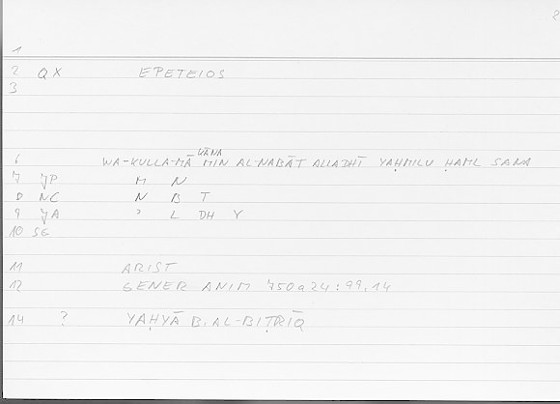 1
2 QX EPETEIOS
3
KĀNA
6 WA-KULLA-MĀ MIN AL-NABĀT ALLADHĪ YAḤMILU ḤAML SANA
7 JP M N
8 NC N B T
9 JA ʾ L DH Y
10 SE
11 ARIST
12 GENER ANIM 750a24 : 99,14
14 ? YAḤYĀ B. AL-BIṬRĪQ